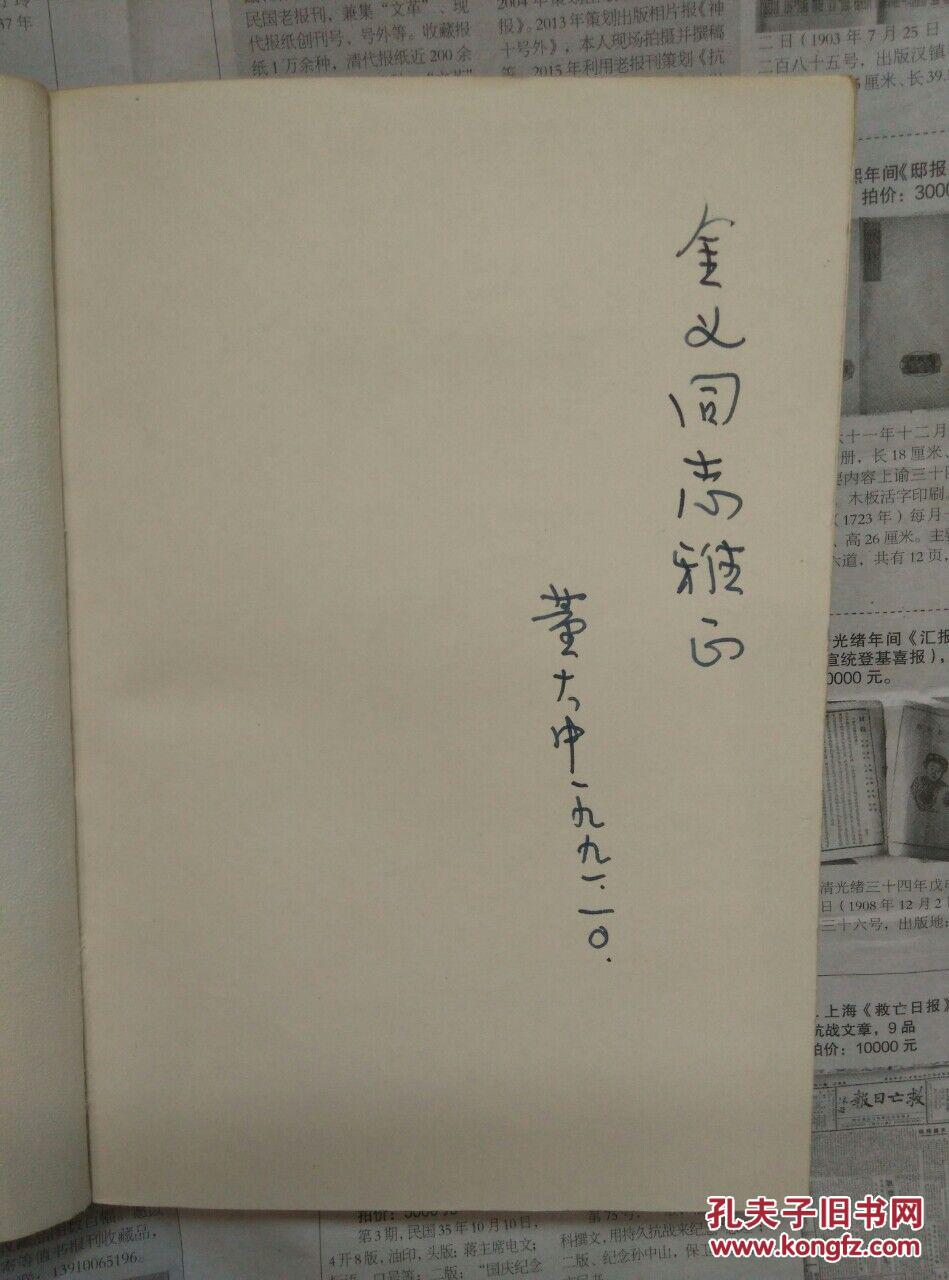 金义同志雅正
董大中一九九一.一〇.
民国老报刊，兼集“文革”、现
代报纸创刊号、号外等。收藏报
纸1万余种，清代报纸近200余
报》。2013年策划出版相片报《神
十号外》，本人现场拍摄并撰稿
等。2015年利用老报刊策划《抗
二日（1903年7月25日
二百八十五号，出版汉镇
厘米、长39.
熙年间《邸报
拍价：3000
六十一年十二月
册，长18厘米、
要内容上谕三十
木板活字印刷
（1723年）每月
、高26厘米。主
六道，共有12页，
光绪年间《汇报
宣统登基喜报），
0000元。
清光绪三十四年戊申
日（1908年12月2
三十六号，出版地：
上海《救亡日报》
抗战文章，9品
拍价：10000元
救亡日报
拍价：3000元
第3期，民国35年10月10日，
4开8版，油印，头版：蒋主席电文；
二版：“国庆纪念
第75号
科撰文，用持久抗战来纪念
二版、纪念孙中山，保卫
等值书报刊收藏品，
13910065196。
孔夫子旧书网
www.kongfz.com